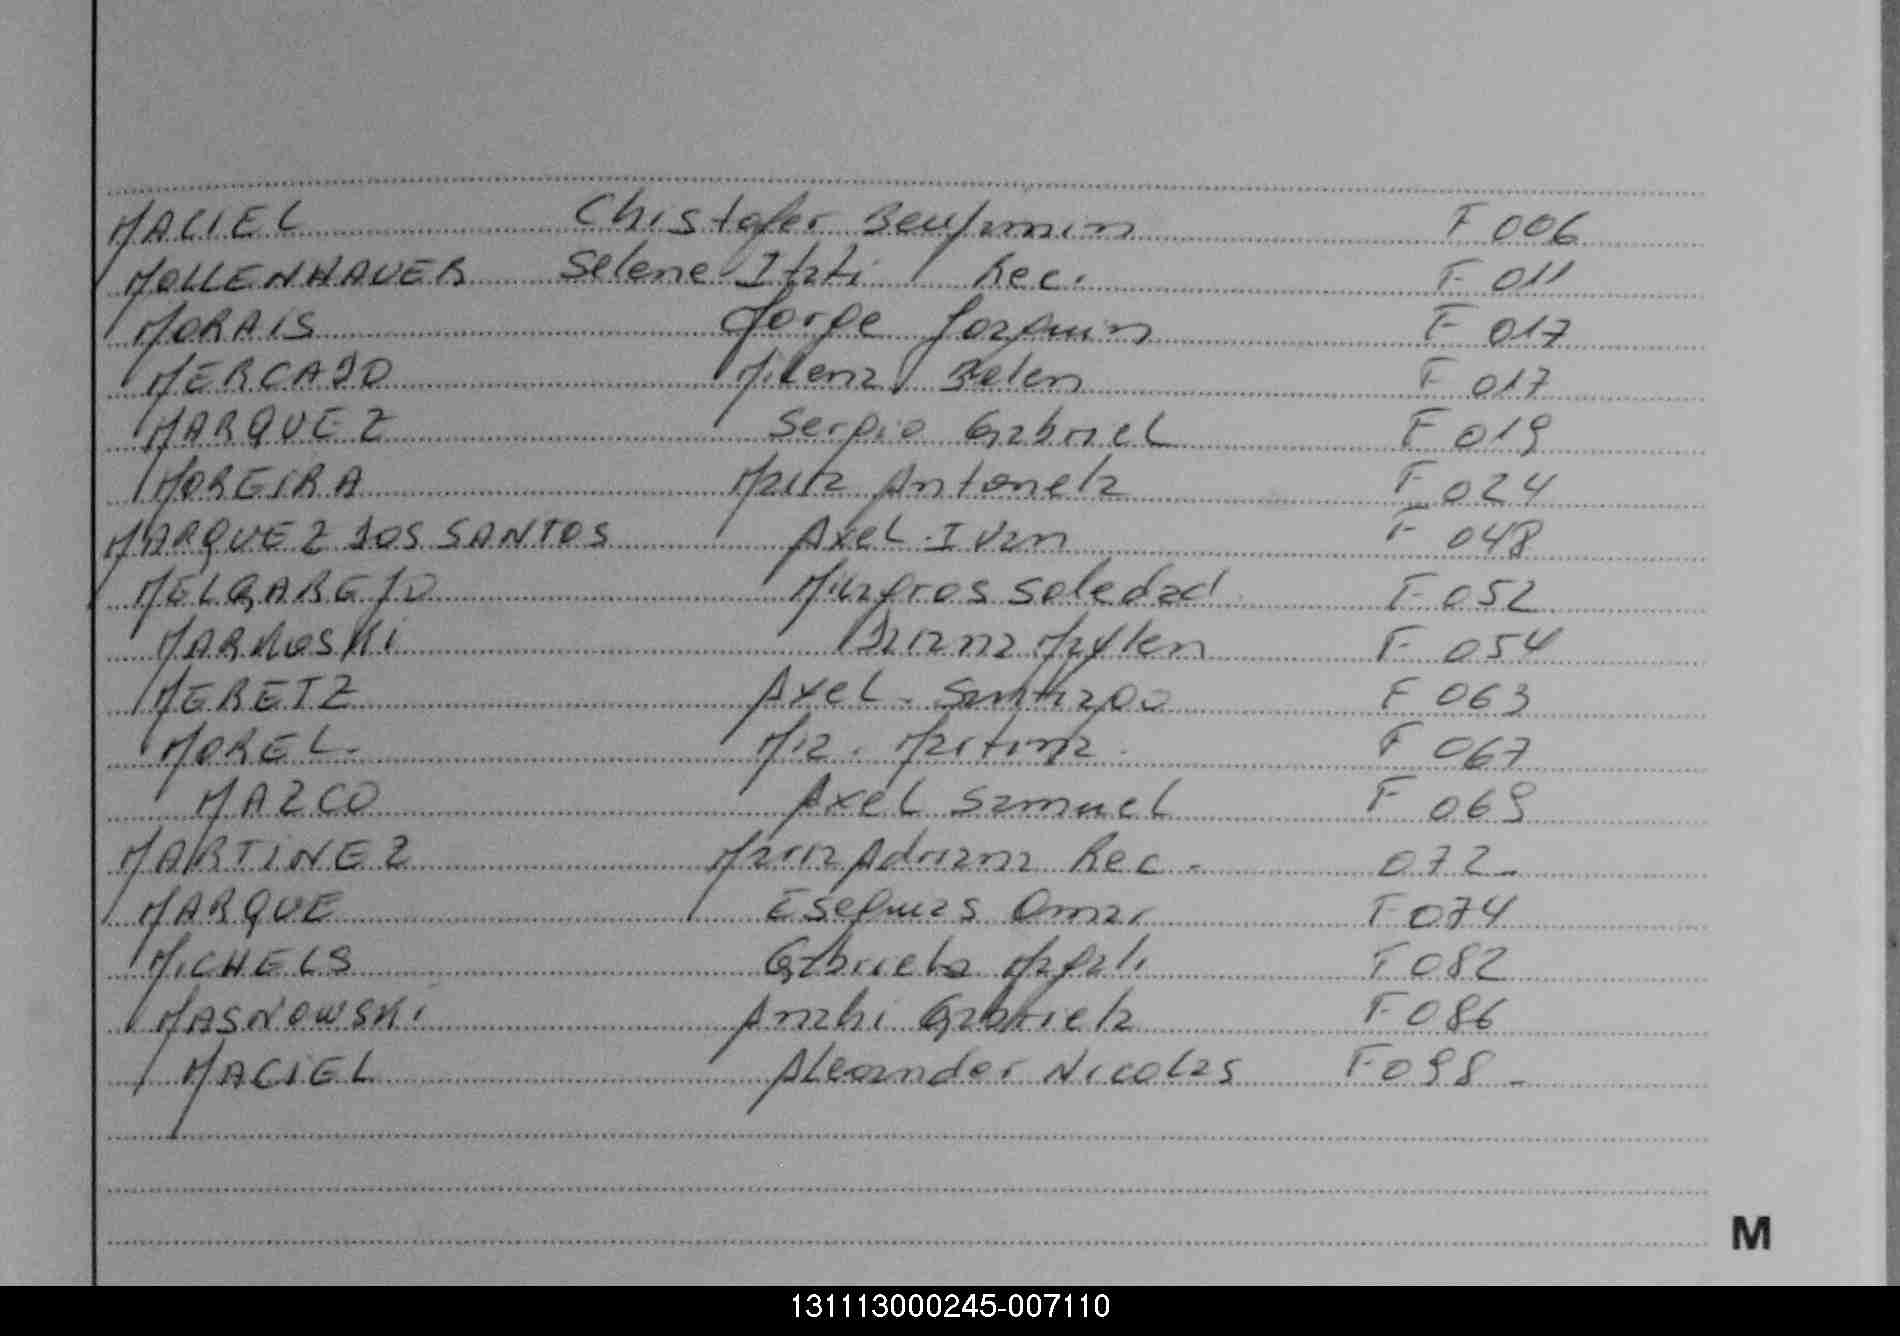 MACIEL Christofer Benjamin F 006
MOLLENHAUER Selene Itati Rec. F 011
MORAIS Jorge Joaquin F 017
MERCADO Milena Belen F 017
MARQUEZ Sergio Gabriel F 019
MOREIRA Maria Antonela F 024
MARQUEZ DOS SANTOS Axel Ivan F 048
MELGAREJO Milagros Soledad F 052
Maylen F 054
MERETZ Axel Santiago F 063
MOREL Mia. F 067
MAZCO Axel Samuel F 069
MARTINEZ Maria Adriana Rec. 072
MARQUE Omar F 074
MICHELS Gabriela Magali F 082
MASNOWSKI Anahi Gabriela F 086
MACIEL Alexander Nicolas F 098
M
131113000245-007110